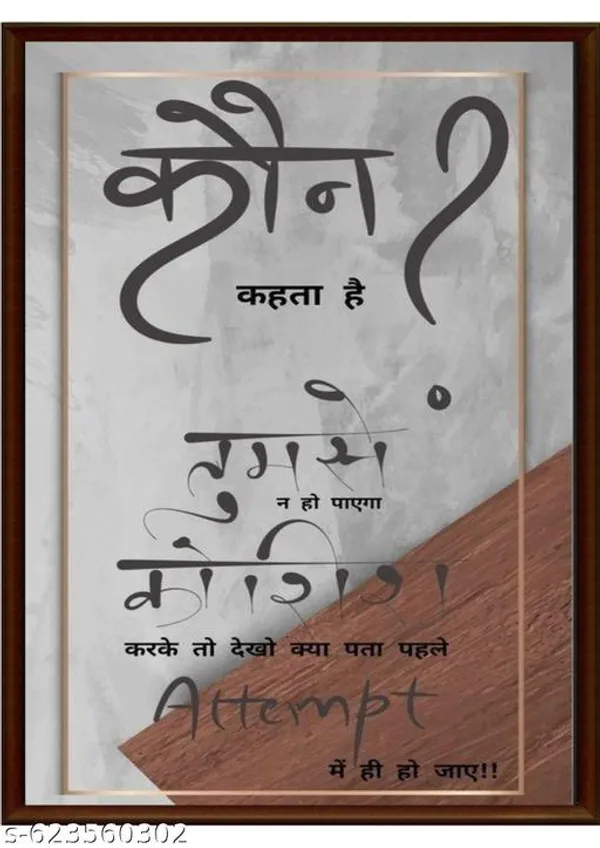 कौन ?
कहता है
तुमसे
न हो पाएगा
कोशिश
करके तो देखो क्या पता पहले
Attempt
में ही हो जाए!!
s-623560302